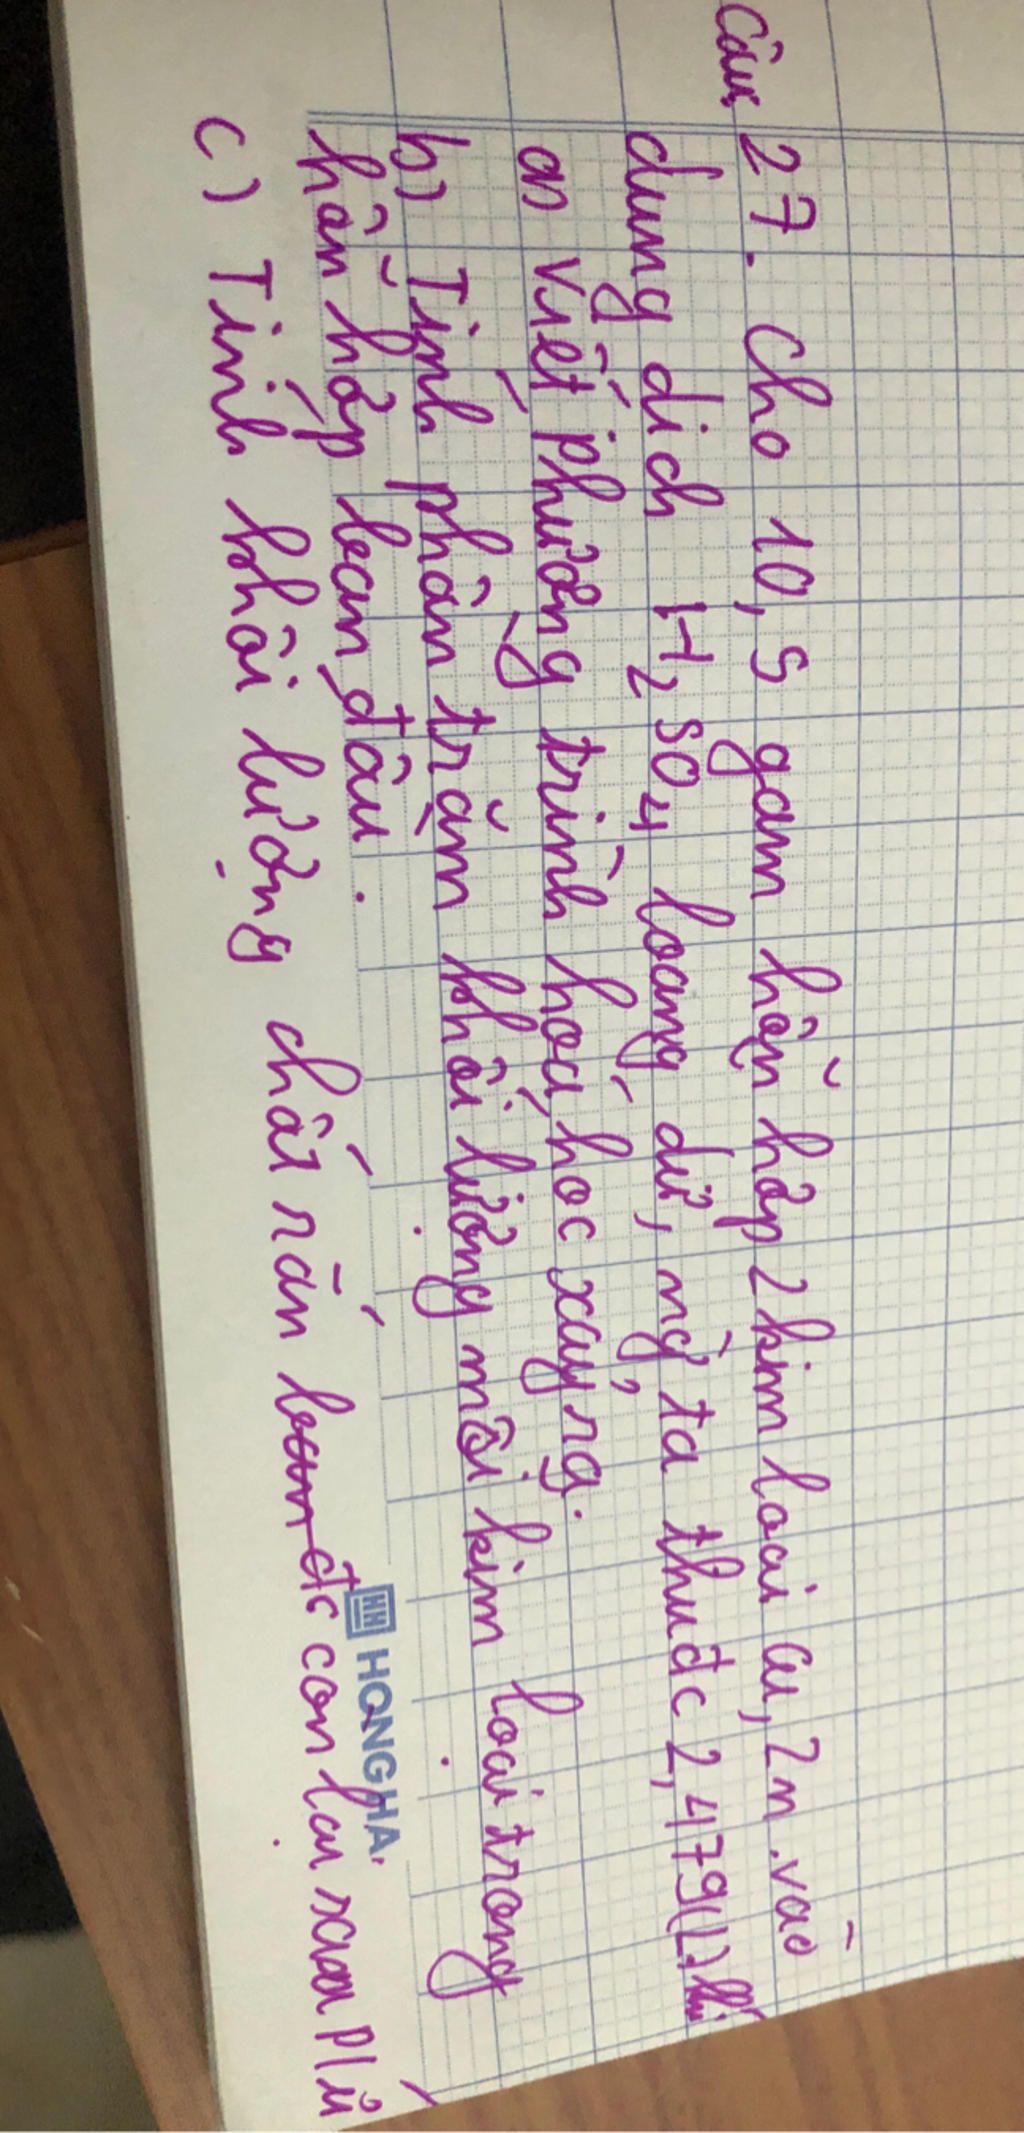 Câu 27. Cho 10,5 gam hỗn hợp 2 kim loại Cu, Zn vào
dung dịch H2SO4 loãng dư, ng ta thu đc 2,479(L) khí
a) Viết phương trình hoá học xảy ra.
b) Tính phần trăm khối lượng mỗi kim loại trong
hỗn hợp ban đầu.
c) Tính khối lượng chất rắn đc còn lại sau PƯ
HONG HA